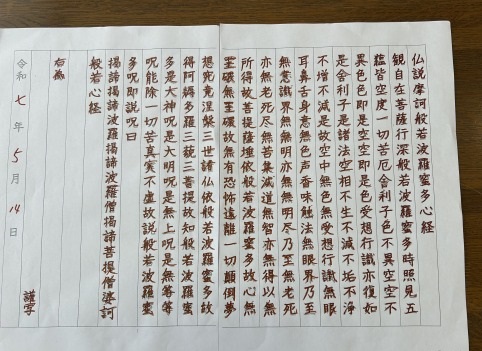 仏説摩訶般若波羅蜜多心経
観自在菩薩行深般若波羅蜜多時照見五
蘊皆空度一切苦厄舎利子色不異空空不
異色色即是空空即是色受想行識亦復如
是舎利子是諸法空相不生不滅不垢不浄
不増不減是故空中無色無受想行識無眼
耳鼻舌身意無色声香味触法無眼界乃至
無意識界無無明亦無無明尽乃至無老死
亦無老死尽無苦集滅道無智亦無得以無
所得故菩提薩埵依般若波羅蜜多故心無
罣礙無罣礙故無有恐怖遠離一切顛倒夢
想究竟涅槃三世諸仏依般若波羅蜜多故
得阿耨多羅三藐三菩提故知般若波羅蜜
多是大神呪是大明呪是無上呪是無等等
呪能除一切苦真実不虚故説般若波羅蜜
多呪即説呪曰
掲諦掲諦波羅掲諦波羅僧掲諦菩提僧婆訶
般若心経
右為
令和七年5月14日
謹写